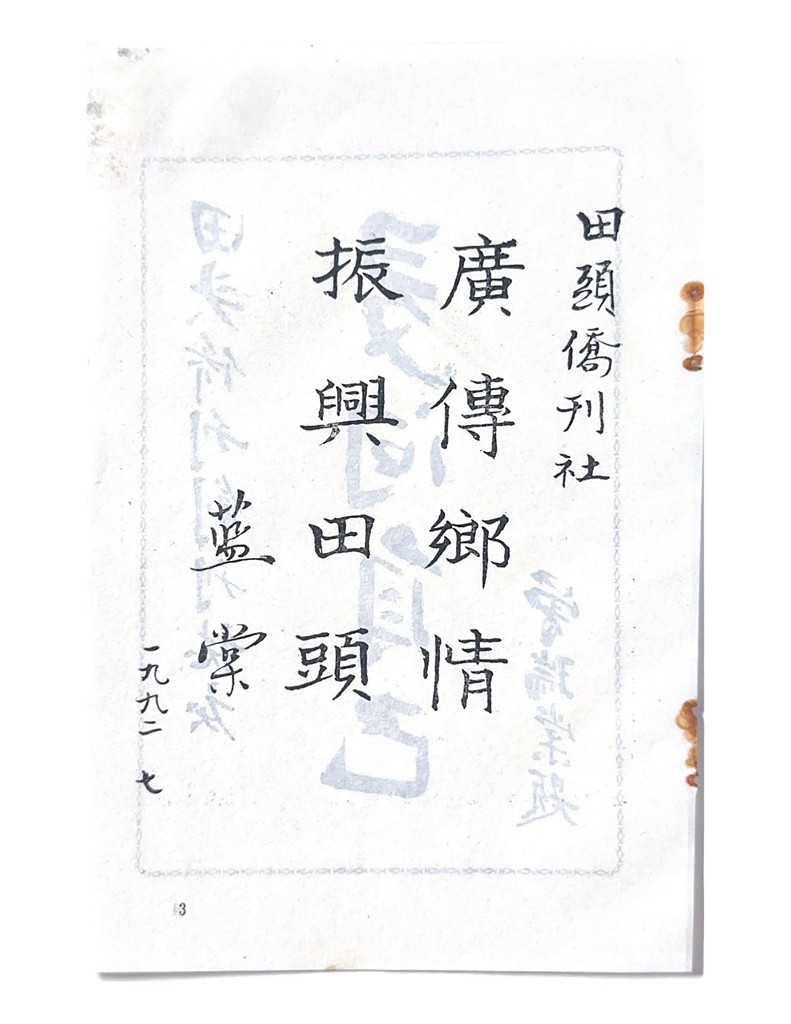 田頭僑刊社
廣傳鄉情
振興田頭
藍棠
一九九二 七
3